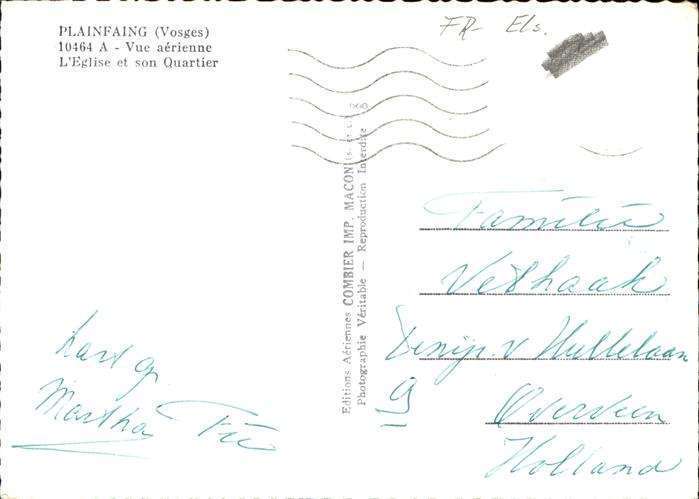 PLAINFAING (Vosges)
10464 A - Vue aérienne
L'Eglise et son Quartier
FR- Els.
Editions Aériennes COMBIER IMP. MACON
Photographie Véritable — Reproduction Interdite
Familie
Vethaak
v. Hullelaan
9
Overveen
Holland
Martha